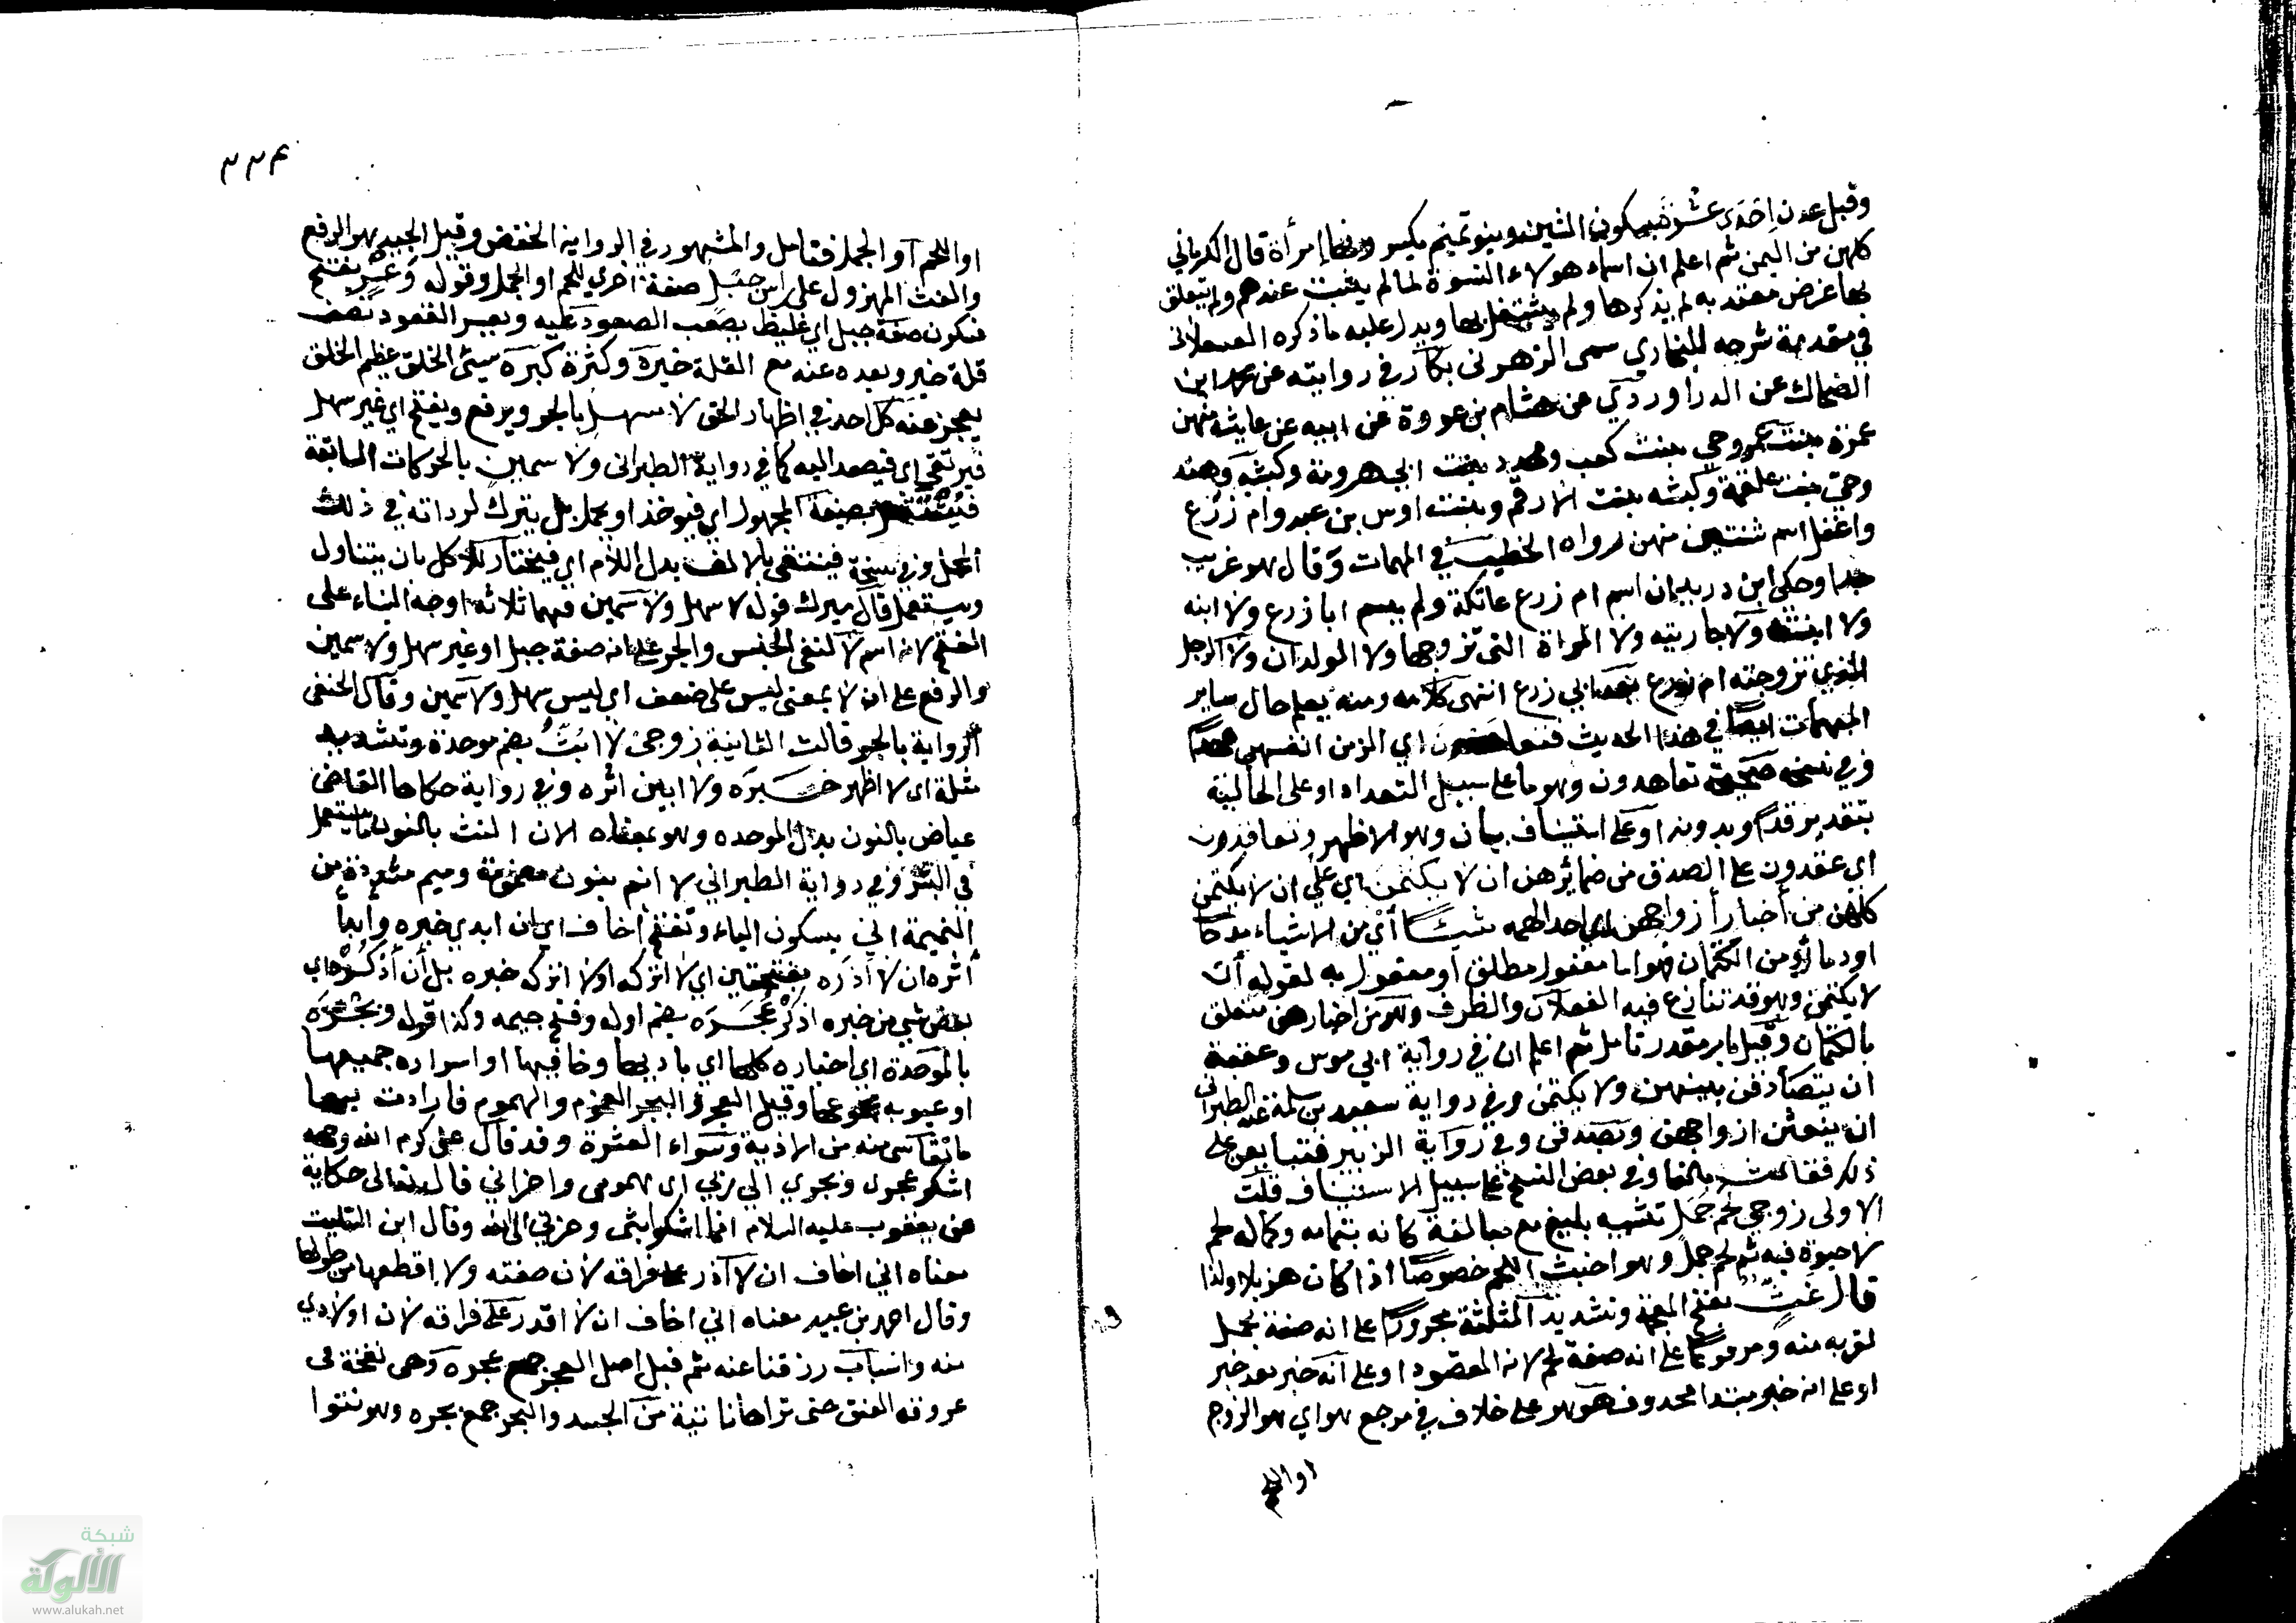 وقيل عدن احدى عشرة بسكون الشين وبنو تميم يكسرونها امرأة قال الكرماني
كلهن من اليمن ثم اعلم ان اسماء هولاء النسوة لما لم يثبت عندهم ولم يتعلق
بها غرض معتد به لم يذكرها ولم يشتغل بها ويدل عليه ما ذكره العسقلاني
في مقدمة شرحه للبخاري سمى الزهر بن بكار في روايته عن محمد ابن
الضحاك عن الدراوردي عن هشام بن عروة عن ابيه عن عايشة منهن
عمرة بنت عمرو وحبي بنت كعب ومهدد بنت ابي هرومة وكبشة وهند
وحبي بنت علقمة وكبشه بنت الارقم وبنت اوس بن عبد وام زرع
واغفل اسم ثنتين منهن رواه الخطيب في المهمات وقال هو غريب
جدا وحكى ابن دريد ان اسم ام زرع عاتكة ولم يسم ابا زرع ولا ابنه
ولا ابنته ولا جاريته ولا المراة التي تزوجها ولا الولدان ولا الرجل
الذي تزوجته ام زرع بعد ابي زرع انتهى كلامه ومنه يعلم حال ساير
المبهمات ايضا في هذا الحديث فتعاهدن اي الزمن انفسهن عهدا
وفي نسخه صحيحة تعاهدون وهو ما على سبيل التعداد او على الحالية
بتقدير قد وبدونه او على استيناف بيان وهو الاظهر وتعاقدون
اي عقدون على الصدق من ضمائرهن ان لا يكتمن اي على ان لا يكتمن
كلهن من أخبار أزواجهن شيئا أي من الاشياء
من الكتمان فهو اما مفعول مطلق او مفعول به لقوله أن
لا يكتمن وهو قد تنازع فيه الفعلان والظرف وهو من اخبارهن متعلق
بالكتمان وقيل بامر مقدر تامل ثم اعلم ان في رواية ابي موس وعقبة
ان يتصادقن بينهن ولا يكتمن وفي رواية سعيد بن سلمة عند الطبراني
ان ينعتن ازواجهن ويصدقن وفي رواية الزبير فتبايعن على
ذلك فقالت بالفا وفي بعض النسخ على سبيل الاستيناف قالت
الاولى زوجي لحم جمل تشبيه بليغ مع مبالغة كانه بتمامه وكماله لحم
لا حيوة فيه ثم لحم جمل وهو اخبث اللحم خصوصا اذا كان هزيلا ولذا
قال غث بفتح المعجمة وتشديد المثلثة مجرورا على انه صفة لجمل
لقربه منه ومرفوعا على انه صفة لحم لانه المقصود او على انه خبر بعد خبر
او على انه خبر مبتدا محذوف هو هو على خلاف في مرجع هو اي هو الزوج
او اللحم
٢٢٤
او اللحم او الجمل فتامل والمشهور في الرواية الخفض وقيل الجيد هو الرفع
والغث المهزول على راس جبل صفة اخرى للحم او الجمل وقوله وعر بفتح
فسكون صفة جبل اي غليظ يصعب الصعود عليه ويعسر القعود تصف
قلة خيره وبعده عنه مع القلة خيره وكثرة كبره سيئ الخلق عظيم الخلق
يعجز عنه كل احد في اظهار الحق لا سهل بالجر ويرفع ويفتح اي غير سهل
فيرتقى اي فيصعد اليه كما في رواية الطبراني ولا سمين بالحركات السابقة
فينتقل بصيغة المجهول اي فيوخذ او يحمل بل يترك لرداته في ذلك
المحل وفي نسخة فينتقى بالالف بدل اللام اي فيختار للاكل بان يتناول
ويستعمل قال ميرك قوله لا سهل ولا سمين فيهما ثلاثه اوجه البناء على
الفتح لانه اسم لا لنفي الجنس والجر على انه صفة جبل او غير سهل ولا سمين
والرفع على ان لا بمعنى ليس على ضعف اي ليس سهل ولا سمين وقال الحنفى
الرواية بالجر قالت الثانية زوجى لا ابث بضم موحدة وتشديد
مثلثة اى لا اظهر خبره ولا ابين اثره وفي رواية حكاها القاضى
عياض بالنون بدل الموحده وهو بمعناه الا ان النث بالنون يستعمل
في الشر وفي رواية الطبراني لا انم بنون مضمومة وميم مشددة من
النميمة اني بسكون الياء وتفتح اخاف اي ان ابدي خبره وابدا
أثره ان لا أذره بفتحتين اي لا اتركه او لا اترك خبره بل أن أذكره اي
بعض شي من خبره اذكر عجره بضم اوله وفتح جيمه وكذا قوله وبجره
بالموحدة اي اخباره كلها اي باديها وخافيها او اسراره جميعها
او عيوبه مجموعها وقيل العجر والبجر الغموم والهموم فارادت بهما
ما تقاسي منه من الاذية وسواء العشرة وقد قال على كرم الله وجهه
اشكو عجرى وبجرى الى ربي اى همومى واحزاني قال تعالى حكاية
عن يعقوب عليه السلام انما اشكوا بثى وحزنى الى الله وقال ابن السكيت
معناه اني اخاف ان لا آذر على فراقه لأن صفته ولا اقطعها من طولها
وقال احمد بن عبيد معناه اني اخاف ان لا اقدر على فراقه لأن اولادي
منه واسباب رزقنا عنه ثم قيل اصل العجر جمع عجره وهى نفخة فى
عروق العنق حتى تراها ناتية من الجسد والبجر جمع بجره وهو نتوا
شبكة
الألوكة
www.alukah.net